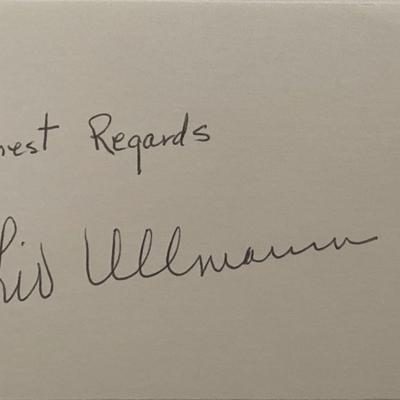 nest Regards
Liv Ullmann